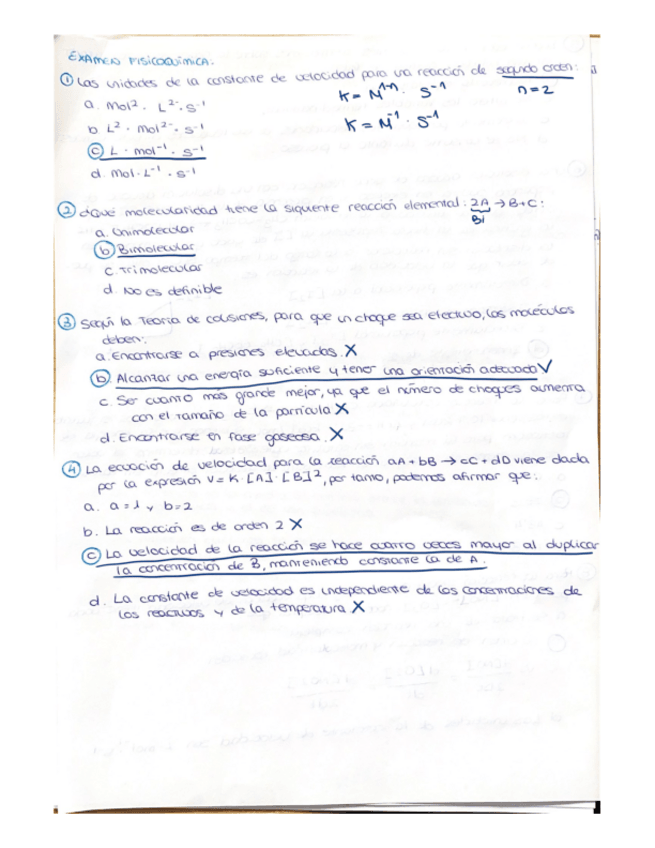 EXAMEN FISICOQUÍMICA.
① Las unidades de la constante de velocidad para una reacción de segundo orden:
K = M^1-n · S^-1
n=2
a. Mol² · L^2- · s^-1
b. L² · mol^2- · s^-1
K = M^-1 · S^-1
ⓒ L · mol^-1 · s^-1
d. Mol · L^-1 · s^-1
② ¿Qué molecularidad tiene la siguiente reacción elemental: 2A → B+C:
Bi
a. Unimolecular
ⓑ Bimolecular
c. Trimolecular
d. No es definible
③ Según la Teoría de colisiones, para que un choque sea efectivo, las moléculas
deben:
a. Encontrarse a presiones elevadas. X
ⓑ. Alcanzar una energía suficiente y tener una orientación adecuada V
c. Ser cuanto más grande mejor, ya que el número de choques aumenta
con el tamaño de la partícula X
d. Encontrarse en fase gaseosa. X
④ La ecuación de velocidad para la reacción aA + bB → cC + dD viene dada
por la expresión V = K · [A] · [B]², por tanto, podemos afirmar que:
a. a = 1 y b = 2
b. La reacción es de orden 2 X
ⓒ La velocidad de la reacción se hace cuatro veces mayor al duplicar
la concentración de B, manteniendo constante la de A.
d. La constante de velocidad es independiente de las concentraciones de
los reactivos y de la temperatura X